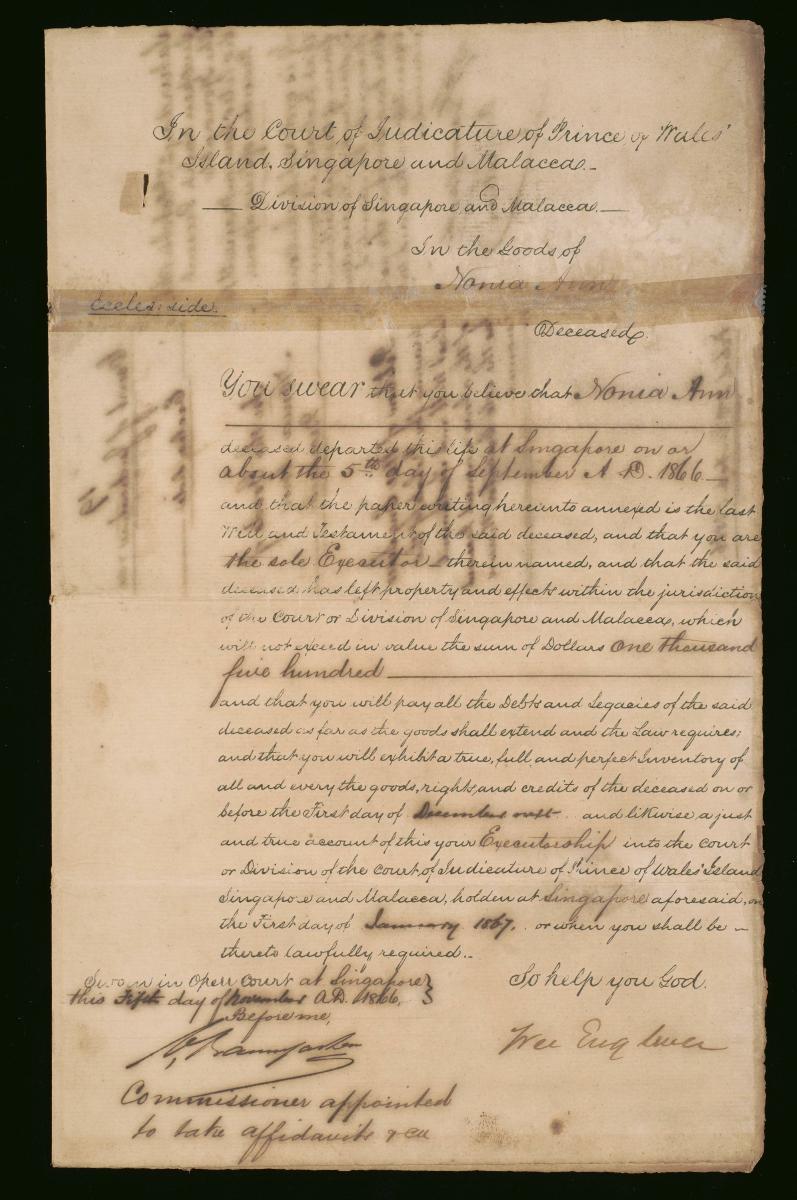 In the Court of Judicature of Prince of Wales'
Island, Singapore and Malacca.
Division of Singapore and Malacca.
In the Goods of
Nonia Ann
Eccles: side.
Deceased.
You swear that you believe that Nonia Ann
deceased departed this life at Singapore on or
about the 5th day of September A.D. 1866
and that the paper writing hereunto annexed is the last
Will and Testament of the said deceased, and that you are
the sole Executor therein named, and that the said
deceased has left property and effects within the jurisdiction
of the Court or Division of Singapore and Malacca, which
will not exceed in value the sum of Dollars One thousand
five hundred
and that you will pay all the Debts and Legacies of the said
deceased as far as the goods shall extend and the Law requires;
and that you will exhibit a true, full, and perfect Inventory of
all and every the goods, rights, and credits of the deceased on or
before the First day of December next and likwise a just
and true account of this your Executorship into the Court
or Division of the Court of Judicature of Prince of Wales' Island
Singapore and Malacca, holden at Singapore aforesaid, on
the First day of January 1867. or when you shall be
thereto lawfully required.
Sworn in Open Court at Singapore
this Fifth day of November A.D. 1866.
Before me,
So help you God.
Wee Eng
Commissioner appointed
to take affidavits &ca